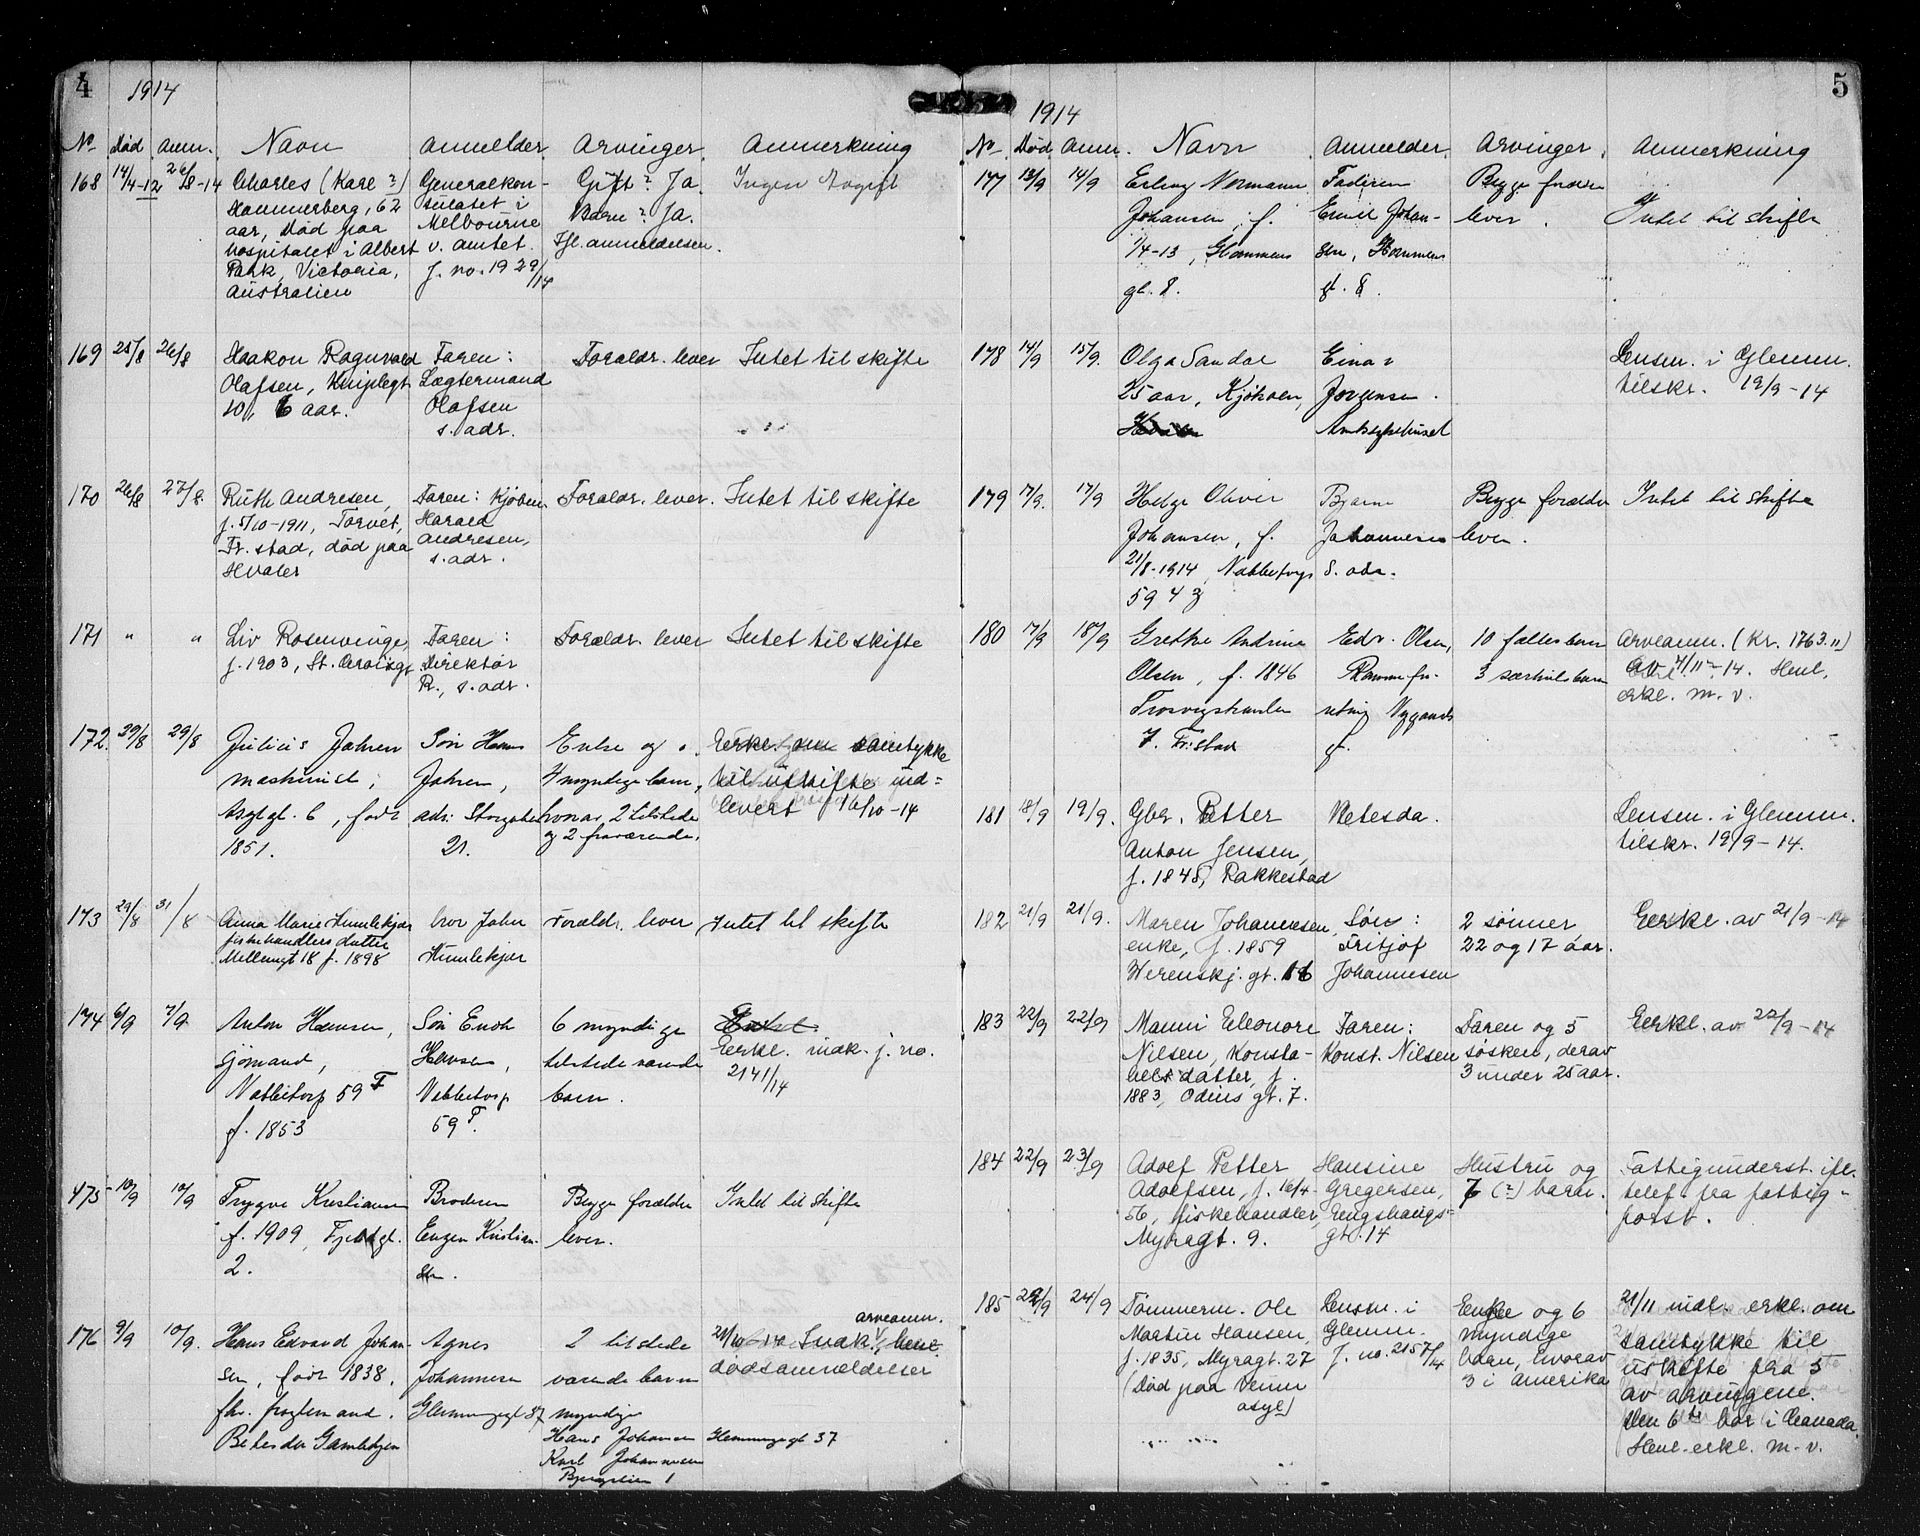 4
1914
No Død Anm. Navn Anmelder Arvinger Anmerkning
168 14/4-12 26/8-14 Charles (Karl?) Generalkon- Gift? Ja. Ingen Avgift
Hammerberg, 62 sulatet i Barn? Ja.
aar, Død paa Melbourne Tfl. anmeldelsen.
hospitalet i Albert v. amtet.
Park, Victoria, J. no. 1929/14
Australien
169 25/8 26/8 Haakon Ragnvald Faren: Forældr. lever Intet til skifte
Olafsen, Lægtermand
10, 6 aar. Olafsen
s. adr.
170 26/8 27/8. Ruth Andresen, Faren: Kjøbm. Forældr. lever. Intet til skifte
f. 5/10-1911, Torvet, Harald
Fr.stad, død paa Andresen,
Hvaler s. adr.
171 " " Liv Rosenvinge, Faren: Forældr. lever Intet til skifte
f. 1903, St. Croixgt. Direktør
R., s. adr.
172. 29/8 29/8 Julius Jahren Søn Hans Enke og Eerkl. om samtykke
maskinist, Jahren, 4 myndige barn, til uskifte ind-
gt. 6, født adr. Storgaten hvorav 2 tilstede levert 16/10-14
1851. 21. og 2 fraværende.
173 29/8 31/8 Anna Marie Humlekjær bror John Forældr. lever Intet til skifte
fiskehandlers datter Humlekjær
Mellemgt 18 f. 1898
174 6/9 7/9 Anton Hansen, Søn Enok 6 myndige
sjømand, Hansen, tilstedeværende Eerkl. indk. j. no.
Nabbetorp 59 F Nabbetorp barn. 2141/14
f. 1853 59 F.
175 10/9 10/9 Trygve Kristiansen Broderen Begge forældre Intet til skifte
f. 1909, Fjeldgt. Eugen Kristian- lever.
2. sen.
arveanm.
176 9/9 10/9. Hans Edvard Johan- Agnes 2 tilstede 21/10-14 Indk.
sen, født 1838, Johannesen værende barn dødsanmeldelser
fhv. fragtemand. Glemmengt 37 myndige
Betesda Gamlebyen Hans Johansen Glemmengt 37
Karl Johannesen
Bjergslien 1
5
1914
No Død Anm. Navn Anmelder. Arvinger. Anmerkning
177 13/9 14/9 Erling Normann Faderen Begge forældre
Johansen, f. Emil Johan- lever. Intet til skifte
1/4-13, Glommens sen, Glommens
gt. 8. gt. 8.
178 14/9 15/9. Olga Sandal Einar Lensm. i Glemm.
25 aar, Kjøkøen, Jørgensen. tilskr. 19/9-14
Amtssykehuset
179 17/9. 17/9 Helge Olivir Bjarne Begge forældre Intet til skifte
Johansen, f. Johannesen lever.
21/8-1914, Nabbetorp s. adr.
59 4 3
180 17/9 18/9 Grethe Andrine Edv. Olsen, 10 fælles barn Arveanm. (Kr. 1763.11)
Olsen, f. 1846 Ramme fo- 3 særkulsbarn av 4/11-14. Henl.
Trosvigstranden retning Nygaards erkl. m. v.
7. Fr.stad gt.
181 18/9 19/9. Gbr. Petter Betesda. Lensm. i Glemm.
Anton Jensen, tilskr. 19/9-14.
f. 1848, Rakkestad
182 21/9 21/9. Maren Johannesen, Søn: 2 sønner Eerkl. av 21/9-14
enke, f. 1859 Fritjof 22 og 17 aar.
Werenskj. gt. 16 Johannesen
183 22/9 22/9 Manni Eleonore Faren: Faren og 5 Eerkl. av 22/9-14
Nilsen, Konsta- Konst. Nilsen søsken, derav
bels datter, f. 3 under 25 aar.
1883, Odins gt. 7.
184 22/9 23/9 Adolf Petter Hansine Hustru og Fattigunderst. ifl.
Adolfsen, f. 16/4- Gregersen, 7 (?) barn. telef. fra fattig-
56, fiskehandler, Engehaugs- forst.
Myragt. 9. gt. 14
185 22/9 24/9 Tømmerm. Ole Lensm. i Enke og 6 21/11 indl. erkl. om
Martin Hansen, Glemm. myndige samtykke til
f. 1835, Myragt. 27 J. no. 2157/14 barn, hvorav uskifte fra 5
(Død paa Venm 3 i Amerika av arvingene.
asyl) Den 6te bor i Canada.
Henl-erkl. m-v.